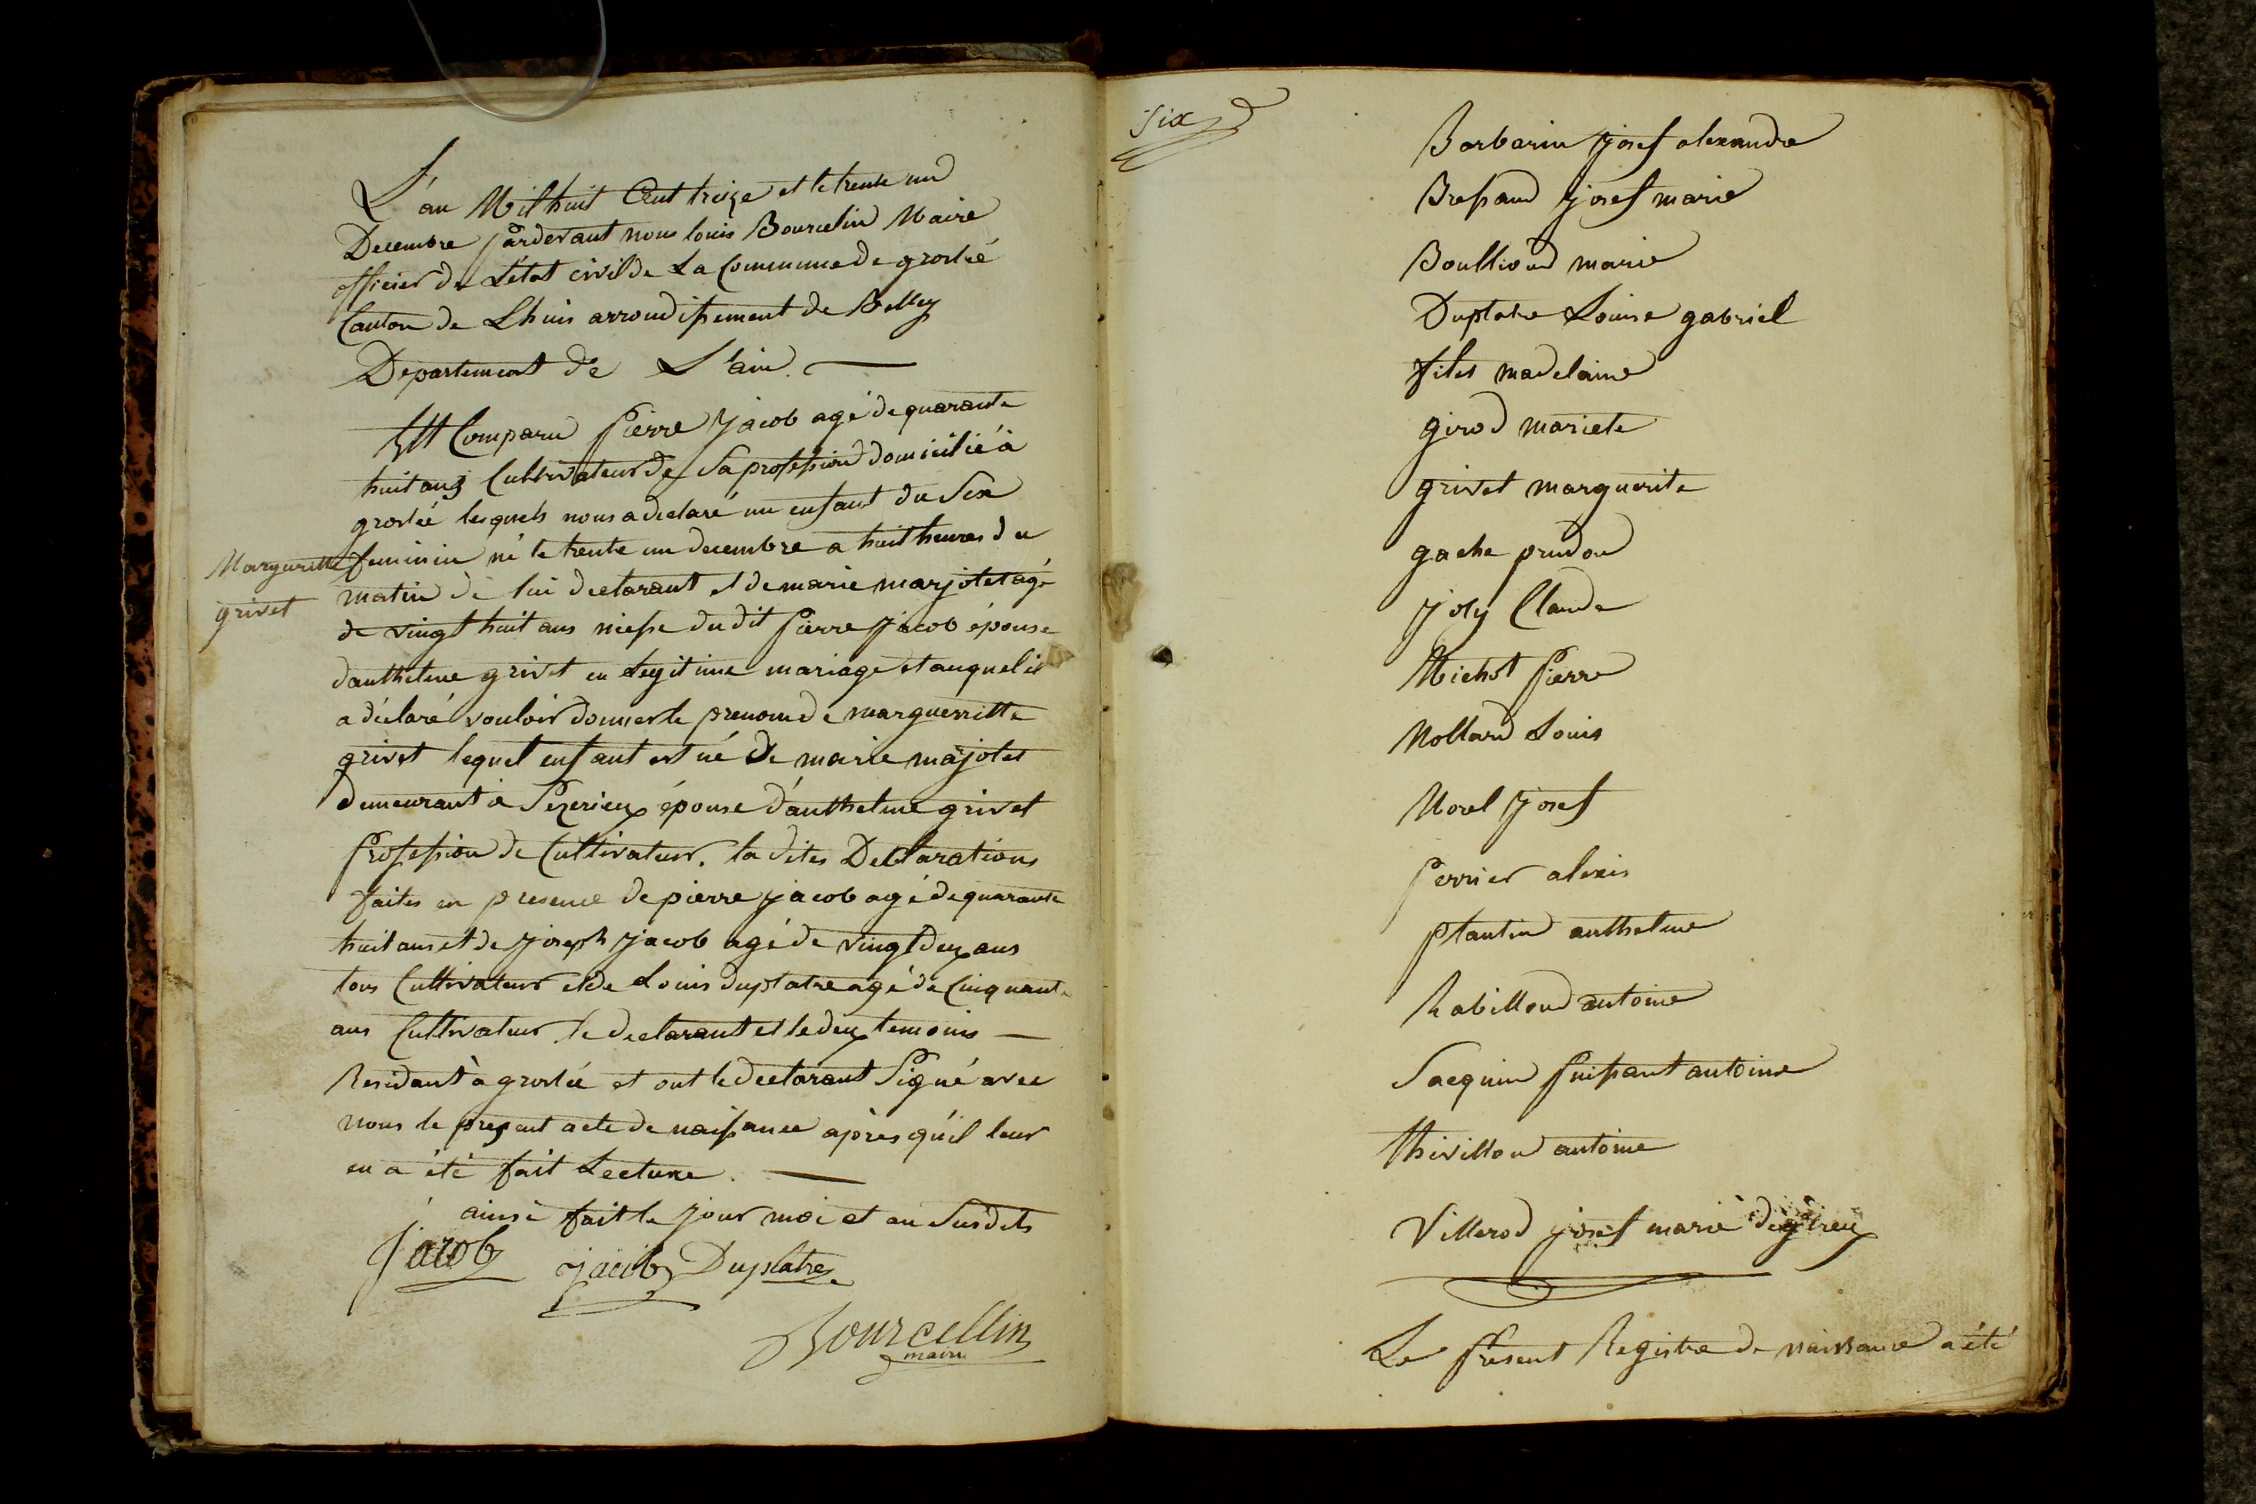 L'an Mil huit Cent treize et le trente un
Decembre pardevant nous louis Bourcelin Maire
officier de L'état civil de La Commune de groslée
Canton de Lhuis arrondissement de Belley
Departement de L'ain.
Est Comparu pierre Jacob agé de quarante
huit ans Cultivateur de Sa profession domicilié à
groslée lesquels nous a declaré un enfant du Sex
feminin né le trente un decembre a huit heures du
matin de lui declarant et de marie marjolet agé
de vingt huit ans niesse du dit pierre Jacob épouse
d'anthelme grivet en Legitime mariage et auquel il
a déclaré vouloir donner le prenom de marguerritte
grivet lequel enfant est né de marie majolet
demeurant à épouse d'anthelme grivet
profession de Cultivateur. la dites Declarations
faites en presence de pierre jacob agé de quarante
huit ans et de Joseph Jacob agé de vingt deux ans
tous Cultivateur et de Louis duplatre agé de Cinquante
ans Cultivateur le declarant et le deux temoins
Residant à groslée et ont le declarant Signé avec
nous le present acte de naissance après qu'il leur
en a été fait Lecture.
ainsi fait le jour moi et an Susdits
Jacob Jacob Duplatre
Bourcellin
maire
Margueritte
grivet
Six
Barbarin Josef alexandre
Bressand Josef marie
Boullioud marie
Duplatre Louise gabriel
filet madelaine
girod mariete
grivet marguerite
gache prudon
Joly Claude
Michot Pierre
Mollard Louis
Morel Josef
perrier alexis
plantin anthelme
Rabilloud antoine
Sacquin puissant antoine
thivillon antoine
Villerod josef marie
Le présent Registre de naissance a été